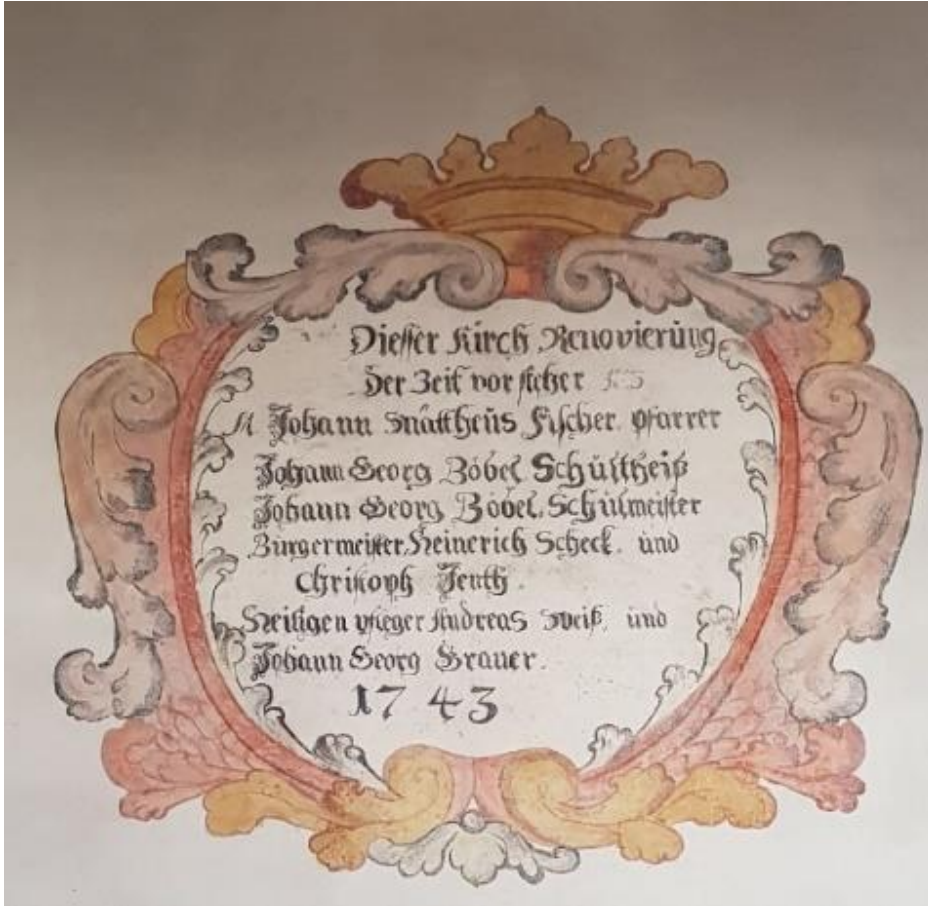 Diesser Kirch Renovierung
Der Zeit vor steher
Johann Mattheus Fischer. Pfarrer
Johann Georg Böbel Schultheiß
Johann Georg Böbel. Schulmeister
Burgermeister. Heinerich Scheck. und
Christoph Jenth.
Heiligen pfleger Andreas Weiß. und
Johann Georg Grauer.
1743